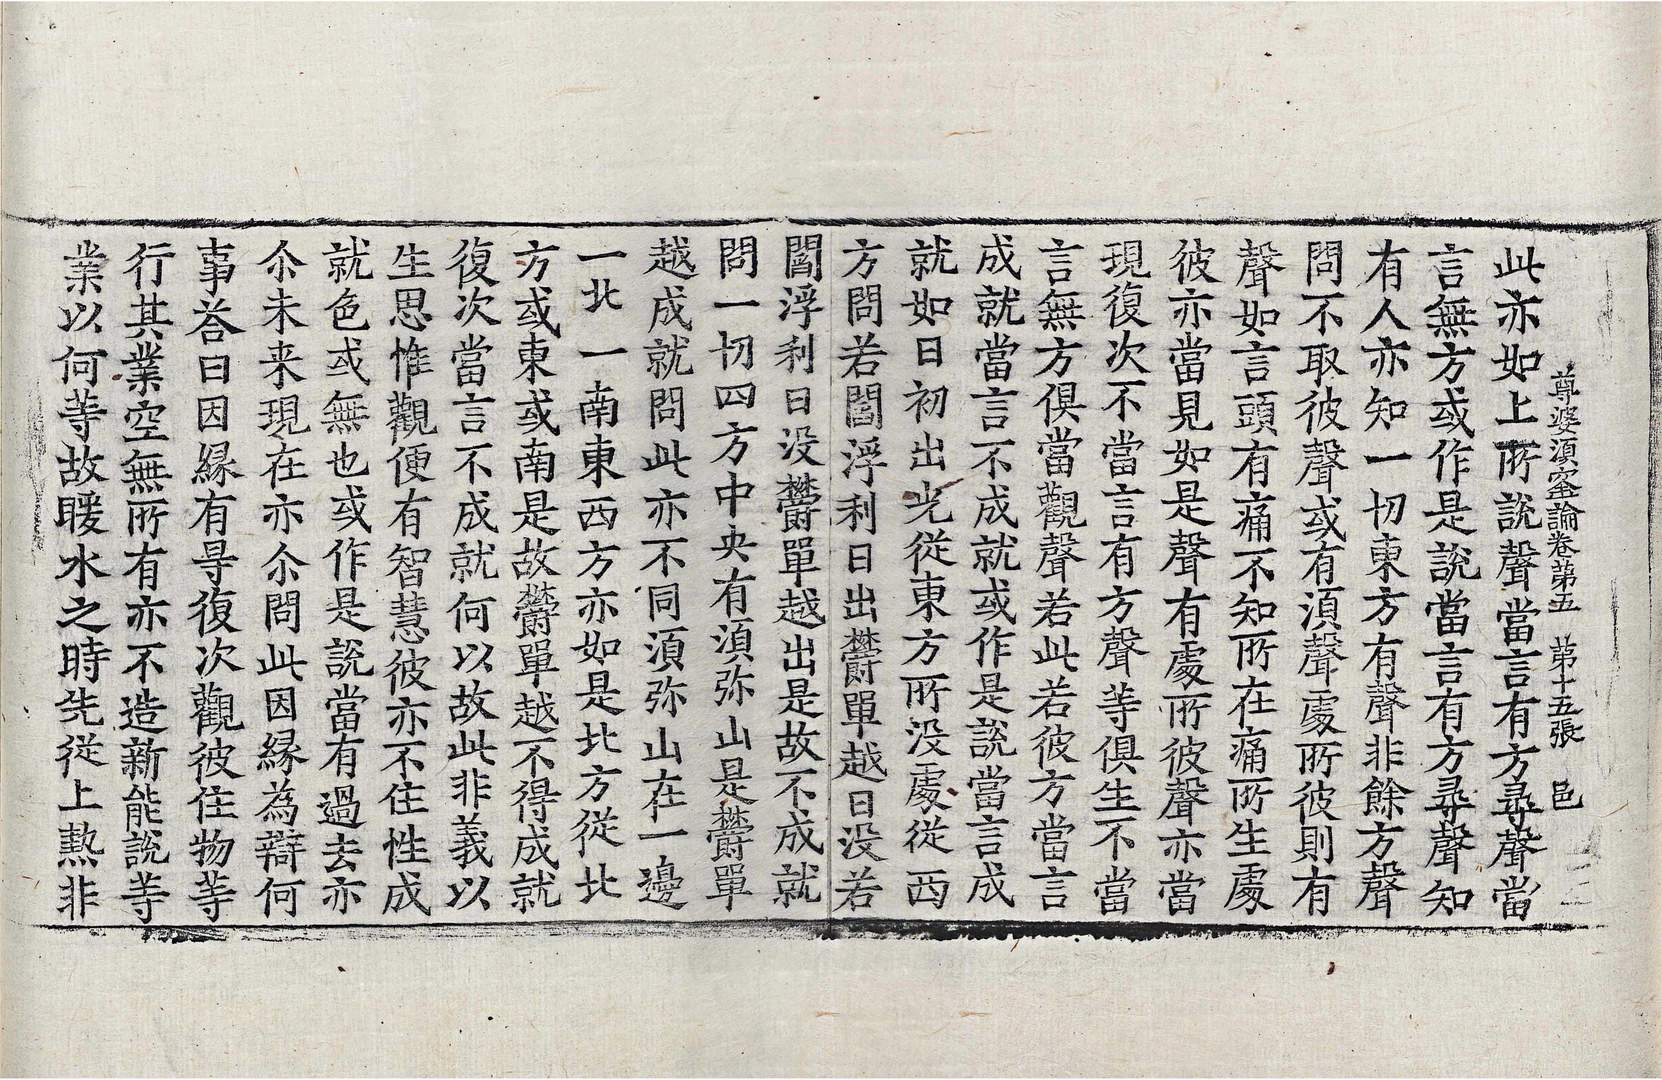 尊婆湏蜜論卷苐五　苐十五張　邑
此亦如上所說聲當言有方尋聲當
言無方或作是說當言有方尋聲知
有人亦知一切東方有聲非餘方聲
問不取彼聲或有湏聲處所彼則有
聲如言頭有痛不知所在痛所生處
彼亦當見如是聲有處所彼聲亦當
現復次不當言有方聲等俱生不當
言無方俱當觀聲若此若彼方當言
成就當言不成就或作是說當言成
就如日初出光從東方所没處從西
方問若閻浮利日出欝單越日没若
閻浮利日没欝單越出是故不成就
問一切四方中央有湏弥山是欝單
越成就問此亦不同湏弥山在一邊
一北一南東西方亦如是北方從北
方或東或南是故欝單越不得成就
復次當言不成就何以故此非義以
生思惟觀便有智慧彼亦不住性成
就色或無也或作是說當有過去亦
尒未来現在亦尒問此因縁為辯何
事荅曰因縁有㝵復次觀彼住物等
行其業空無所有亦不造新能說等
業以何等故暖水之時先從上熱非